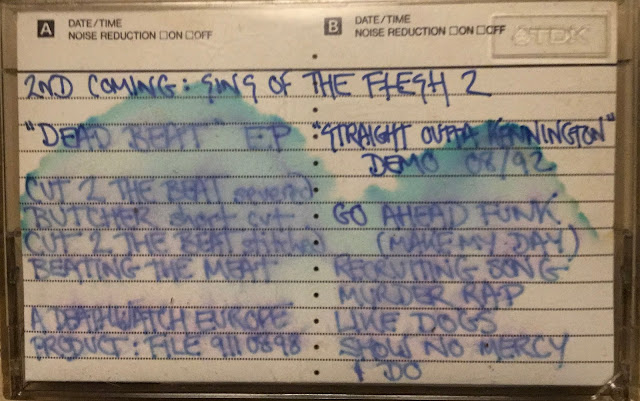 A DATE/TIME
NOISE REDUCTION □ON □OFF
B DATE/TIME
NOISE REDUCTION □ON □OFF
TDK
2ND COMING: SINS OF THE FLESH 2
"DEAD BEAT" EP
CUT 2 THE BEAT severed
BUTCHER short cut
CUT 2 THE BEAT stitched
BEATING THE MEAT
A DEATHWATCH EUROPE
PRODUCT: FILE 9110898
"STRAIGHT OUTTA KENNINGTON"
DEMO 08/92
GO AHEAD FUNK
(MAKE MY DAY)
RECRUITING SONG
MURDER RAP
LIKE DOGS
SHOW NO MERCY
I DO